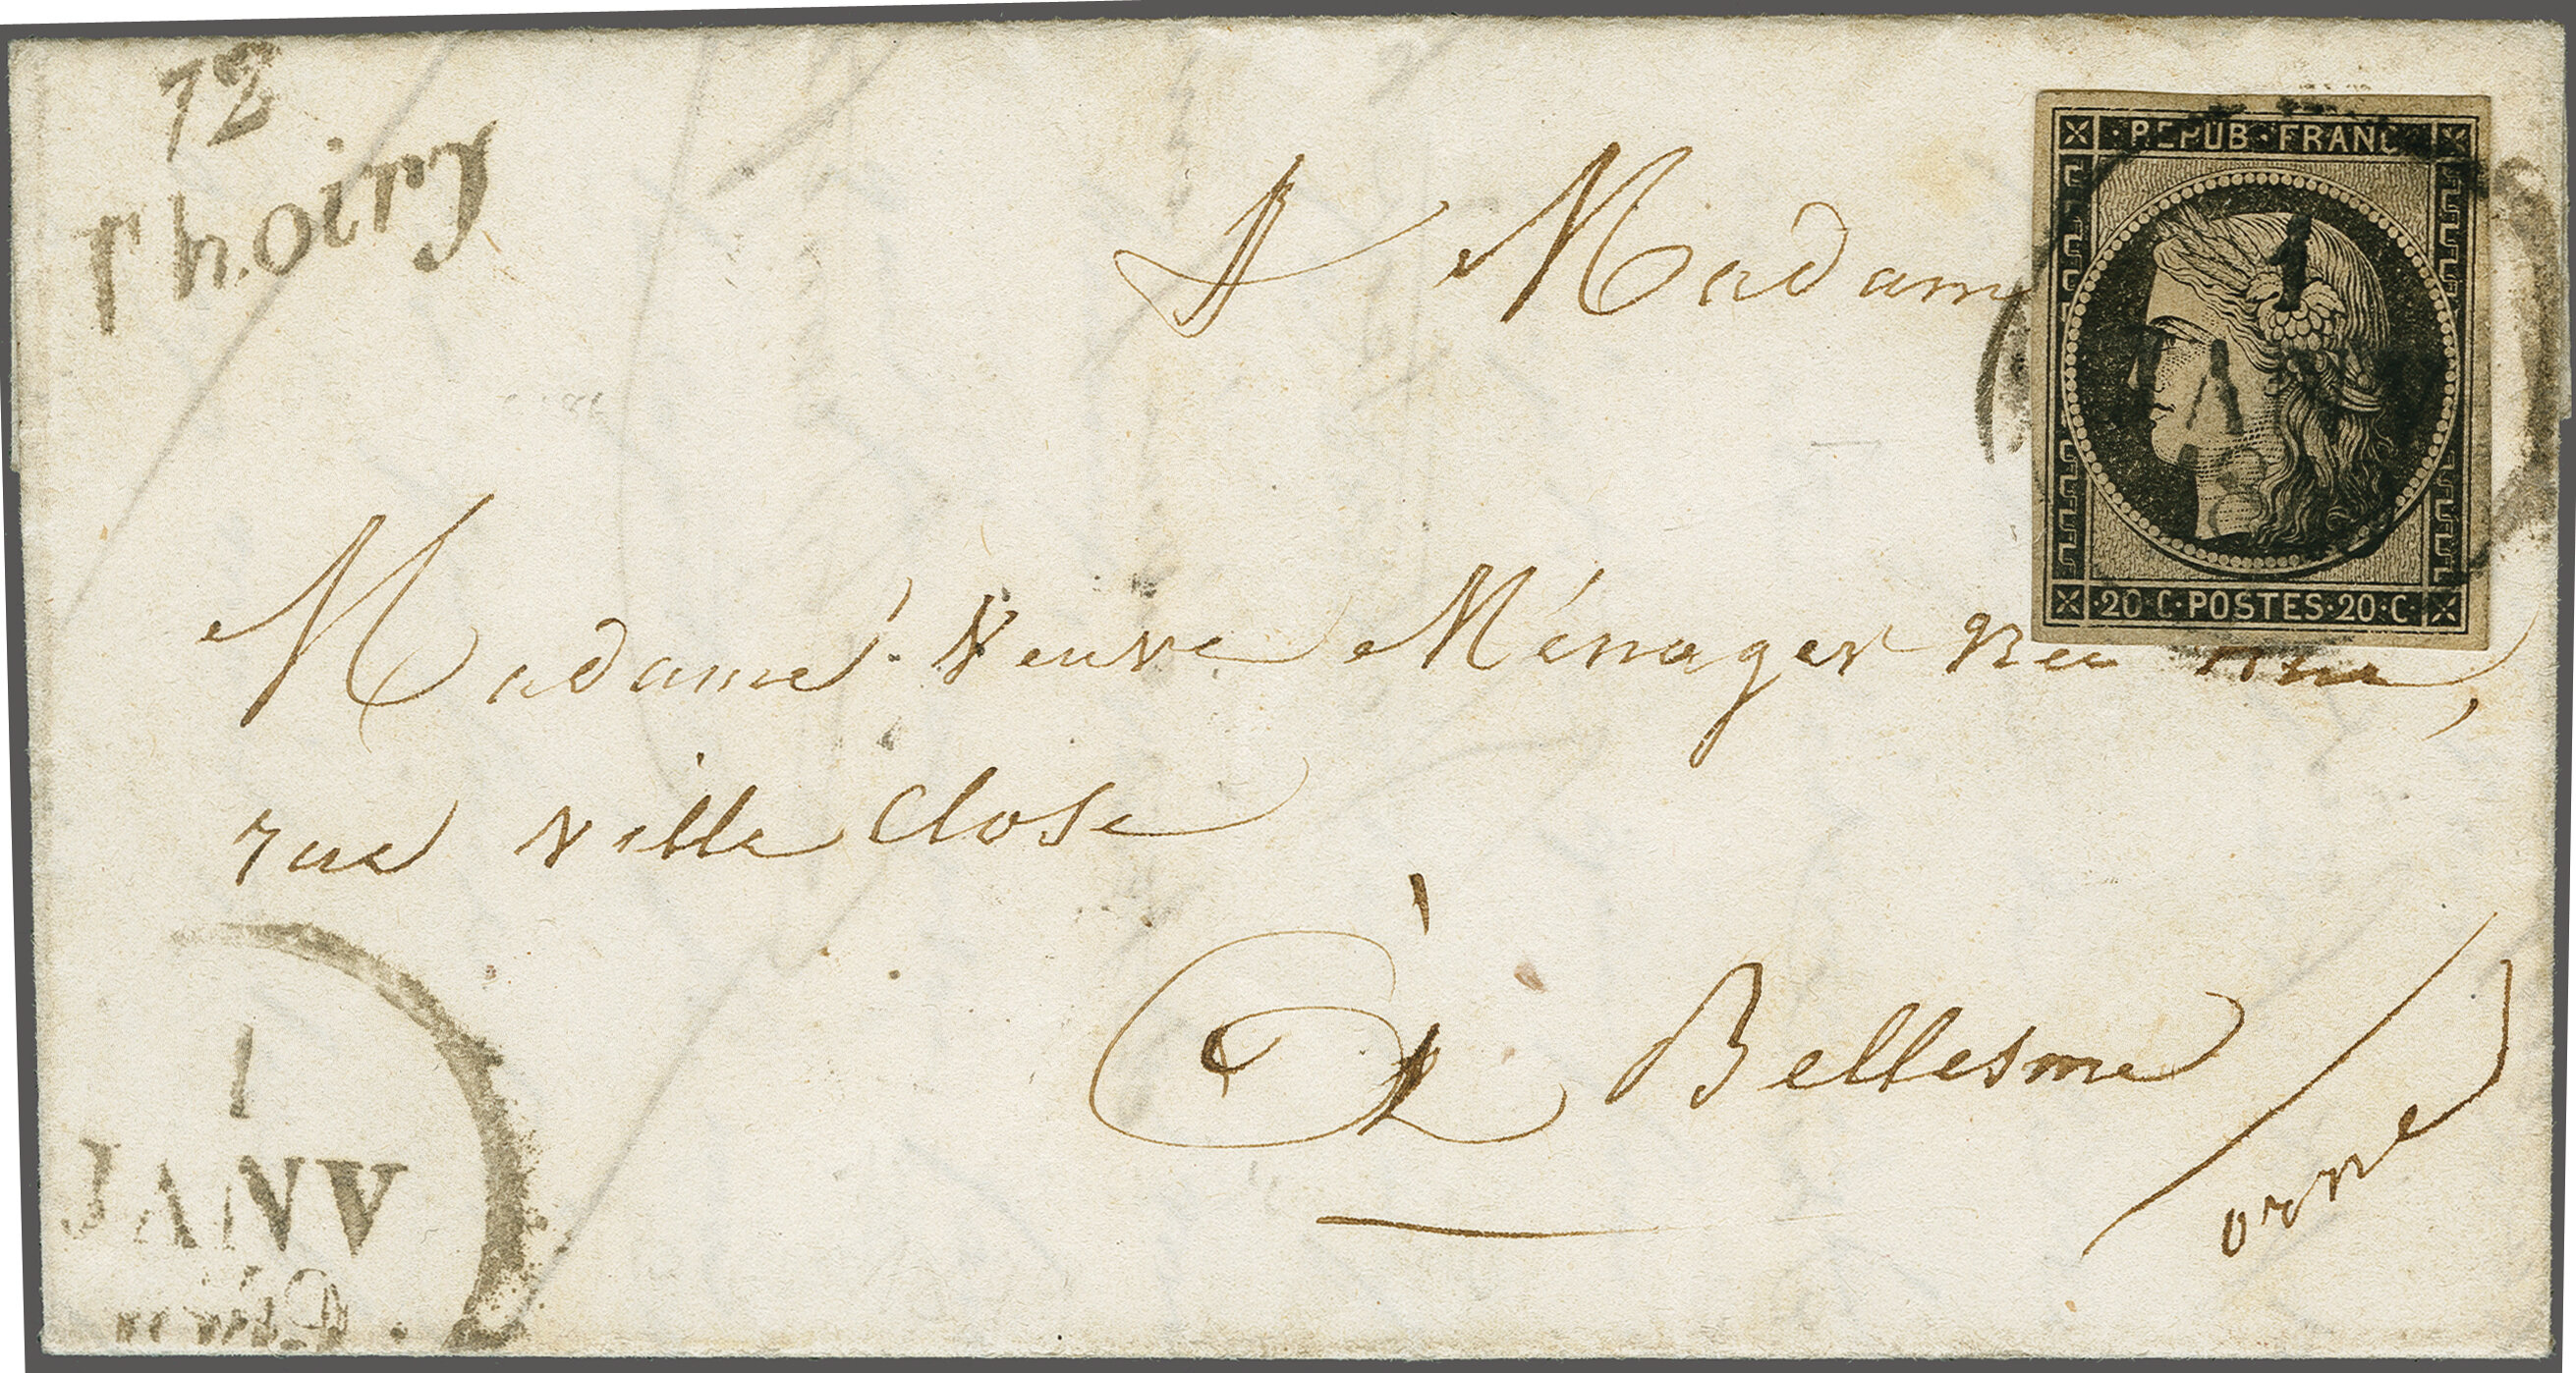 72
Thoiry
A Madame
REPUB · FRANC
20 · C · POSTES · 20 · C ·
Madame Veuve Ménager née
rue ville Close
à Bellesme
orne
1
JANV